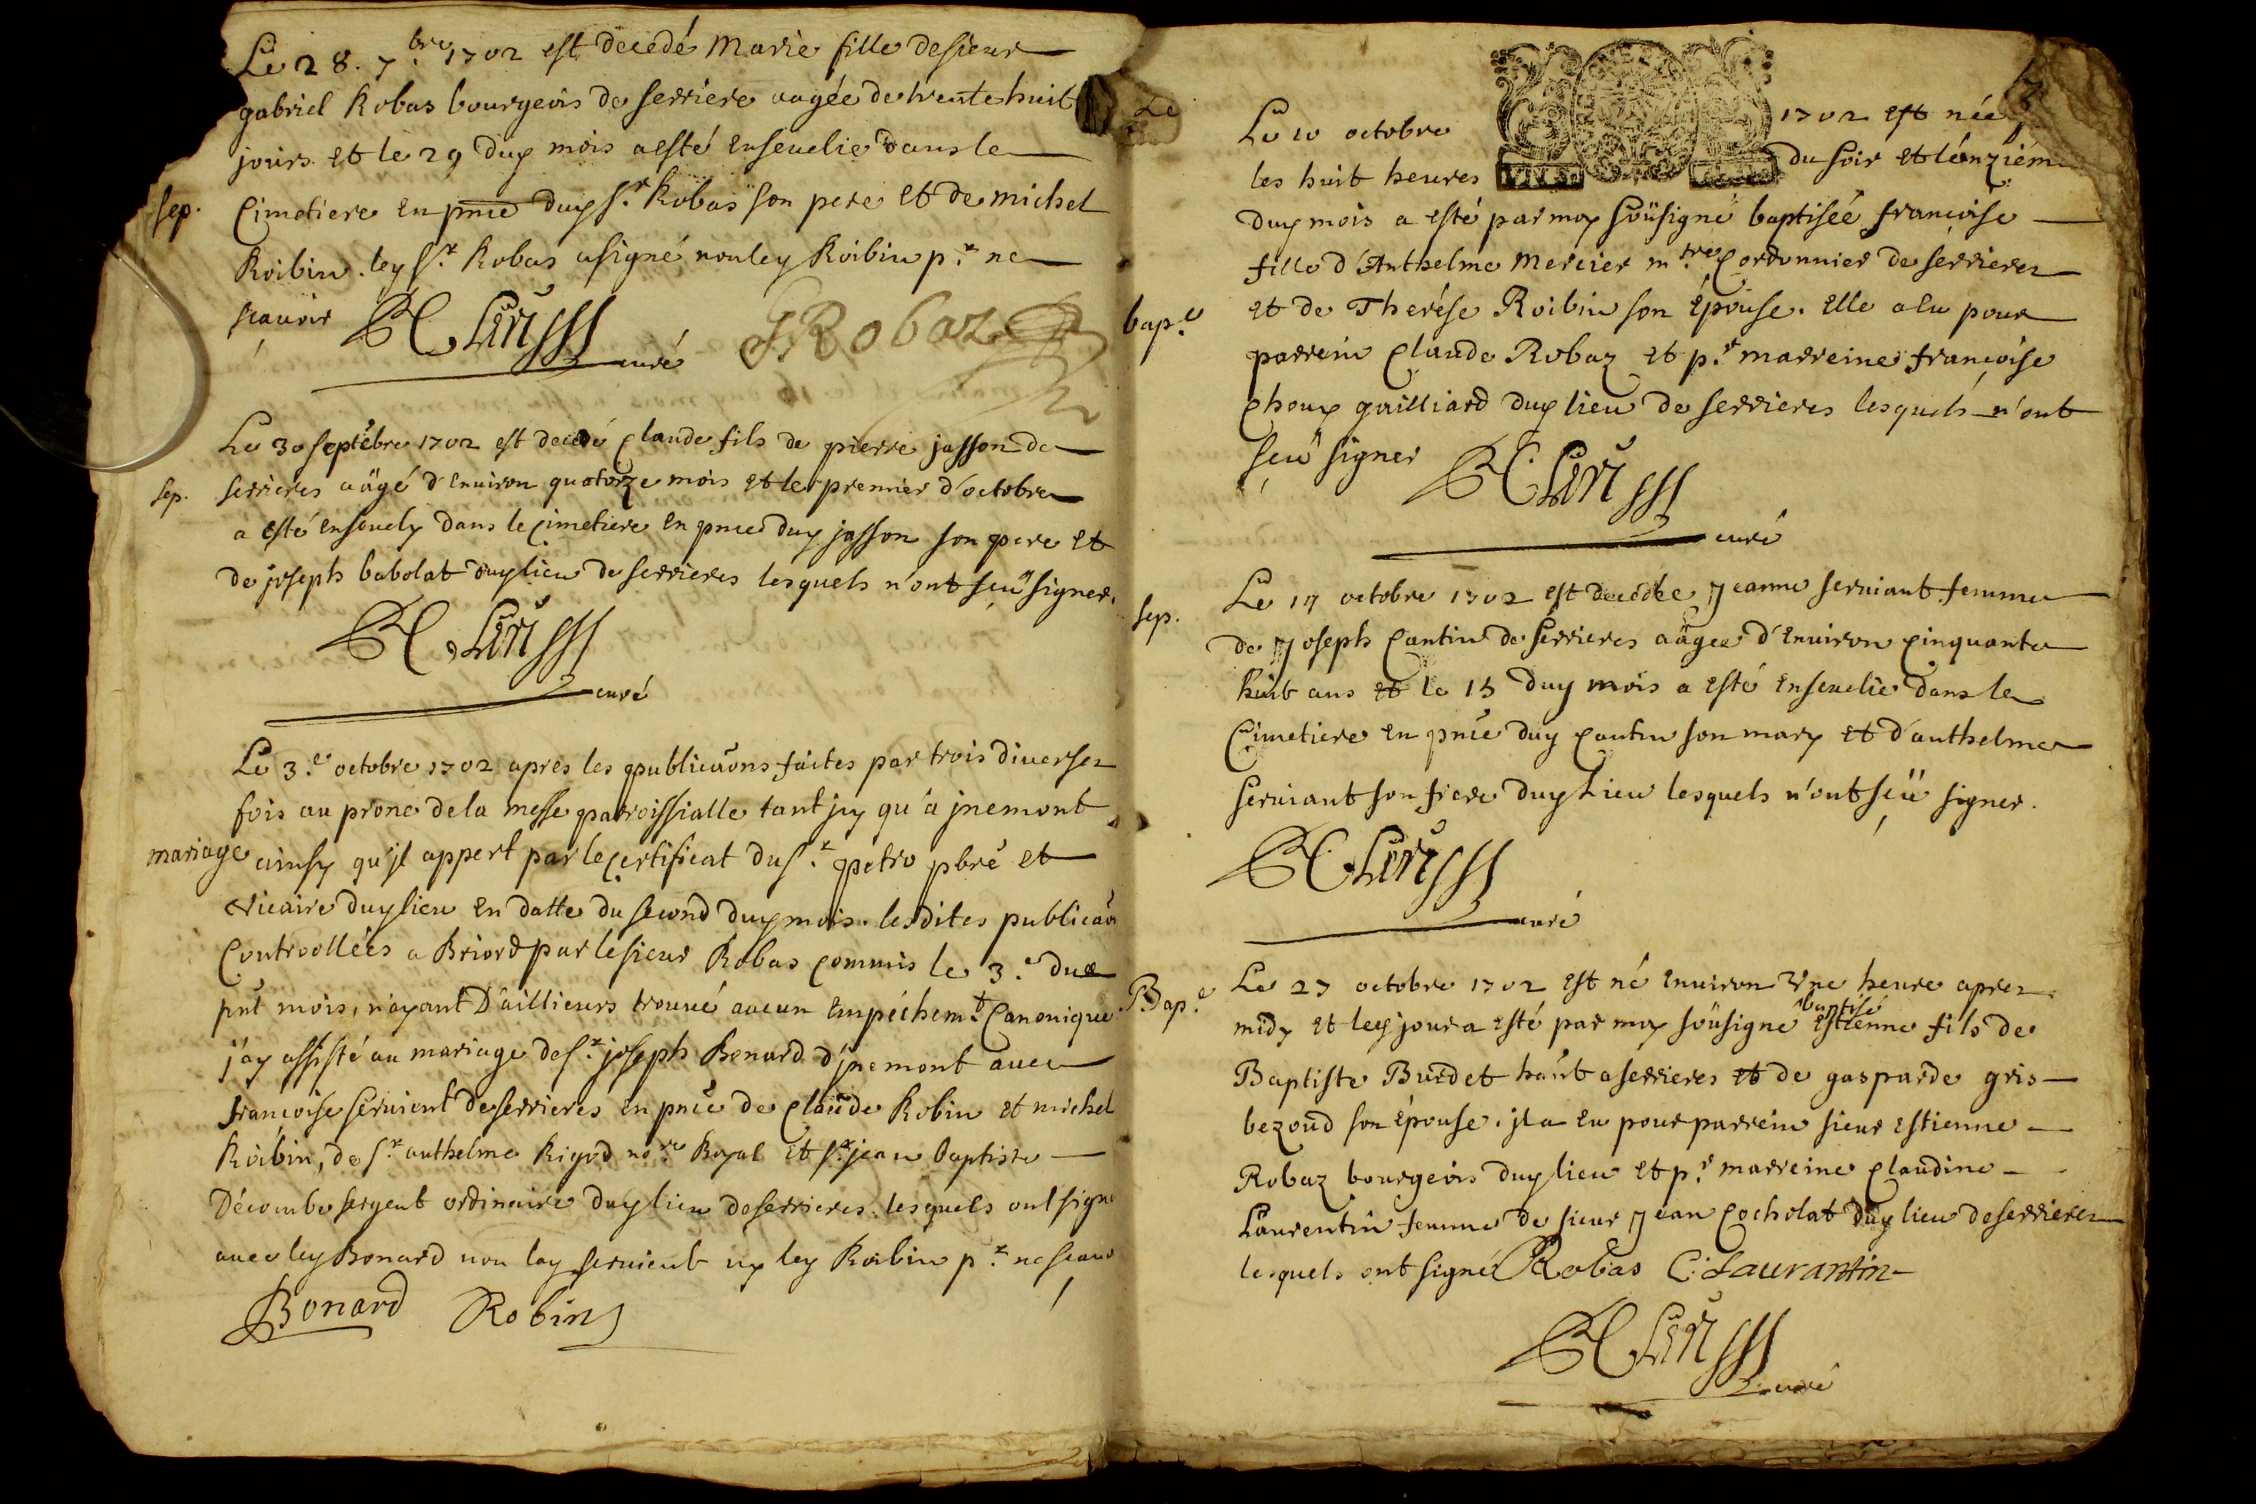 Le 28. 7.bre 1702 est decedé Marie fille de sieur
gabriel Robas bourgeois de serriere aagée de trente huit
jours et le 29 duy mois a esté ensevelie dans le
sep. Cimetiere en pnce duy Sr. Robas son pere et de michel
Roibin. ley Sr. Robas a signé non ley Roibin pr. ne
scavoir
curé GRobaz
Le 30 septēbre 1702 est decedé Claude fils de pierre jasson de
sep. serrieres aägé d'environ quatorze mois et le premier d'octobre
a esté ensevely dans le Cimetiere en pnce duy jasson son pere et
de joseph babolat duy lieu de serrieres lesquels n'ont sceü signer.
curé
Le 3.e octobre 1702 aprés les publicāons faites par trois diverses
fois au prone de la messe parroissialle tant jcy qu'à jnemont
mariage ainsy qu'jl appert par le certificat du Sr. petro pbre et
vicaire duy lieu en datte du second duy mois. lesdites publicāo
Controollées a Briord par le sieur Robas commis le 3.e du
pnt mois, n'ayant d'aillieurs trouvé aucun empéchem.t Canonique
j'ay assisté au mariage de Sr. joseph Bonard d'jnemont avec
françoise servient de serrieres en pnce de Claude Robin et michel
Roibin, de Sr. anthelme Rigod no.re Royal et Sr. jean baptiste
Décombe sergent ordinaire duy lieu de serrieres. lesquels ont signé
avec ley Bonard non lay servient ny ley Roibin pr. ne scavo
Bonard Robin
Le
Le 10 octobre 1702 est née
les huit heures du soir et l'onziém
duy mois a esté par moy soüsigné baptiséé françoise
fille d'Anthelme Mercier m.tre Cordonnier de serrieres
bap.e et de Therése Roibin son épouse. elle a eu pour
parrein Claude Robaz et pr. marreine françoise
Choux gailliard duy lieu de serrieres lesquels n'ont
sceü signer
curé
Le 17 octobre 1702 est decedée Jeanne serviant femme
sep. de Joseph Cantin de serrieres aägee d'environ Cinquante
huit ans et le 18 duy mois a esté ensevelie dans le
Cimetiere en pnce duy Cantin son mary et d'anthelme
serviant son frere duy Lieu lesquels n'ont sceü signer.
curé
Bap.e Le 27 octobre 1702 est né environ une heure apres
midy et ley jour a esté par moy soüsigné baptisé estienne fils de
Baptiste Burdet habt a serrieres et de gasparde gris-
bezoud son épouse. jl a eu pour parrein sieur estienne
Robaz bourgeois duy lieu et pr. marreine Claudine
Laurentin femme de sieur Jean Cocholat duy lieu de serrieres
lesquels ont signé Robas C. Laurantin
curé